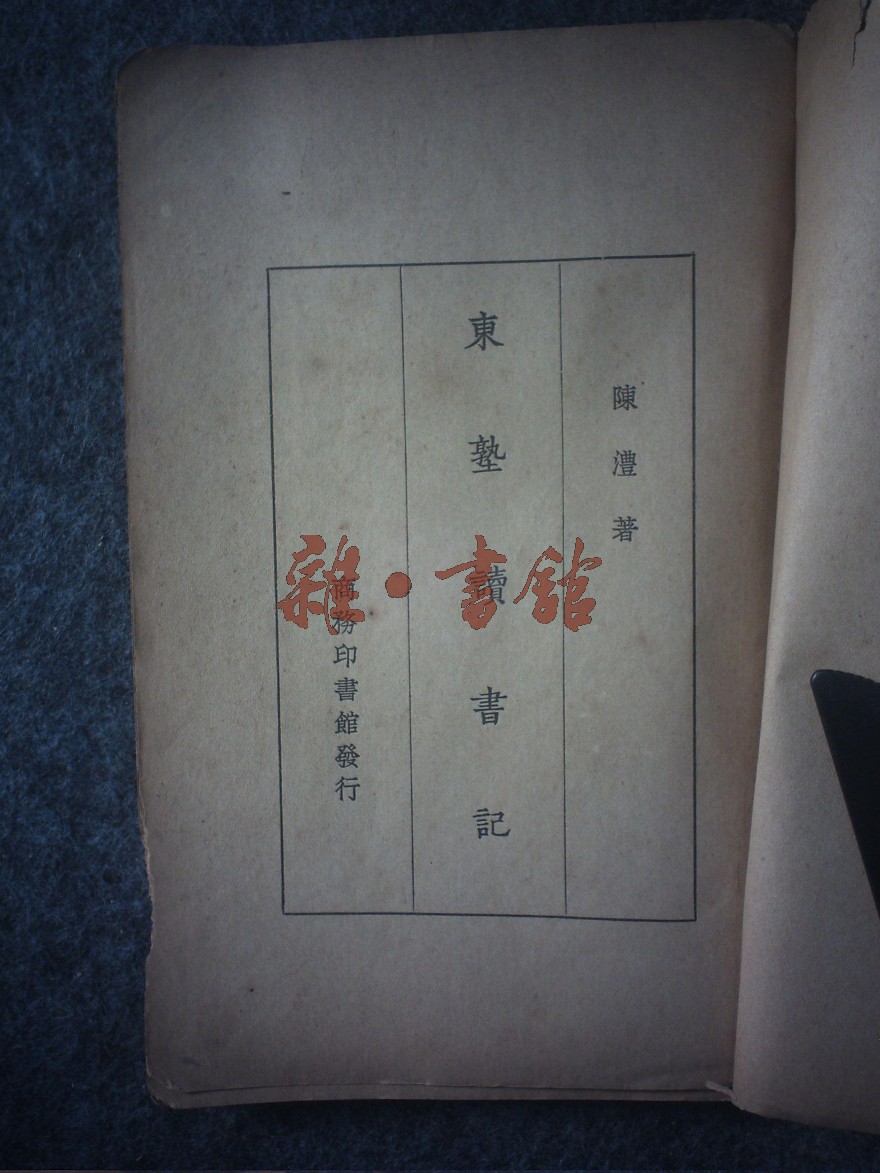 陳澧著
東塾讀書記
商務印書館發行
雜·書館